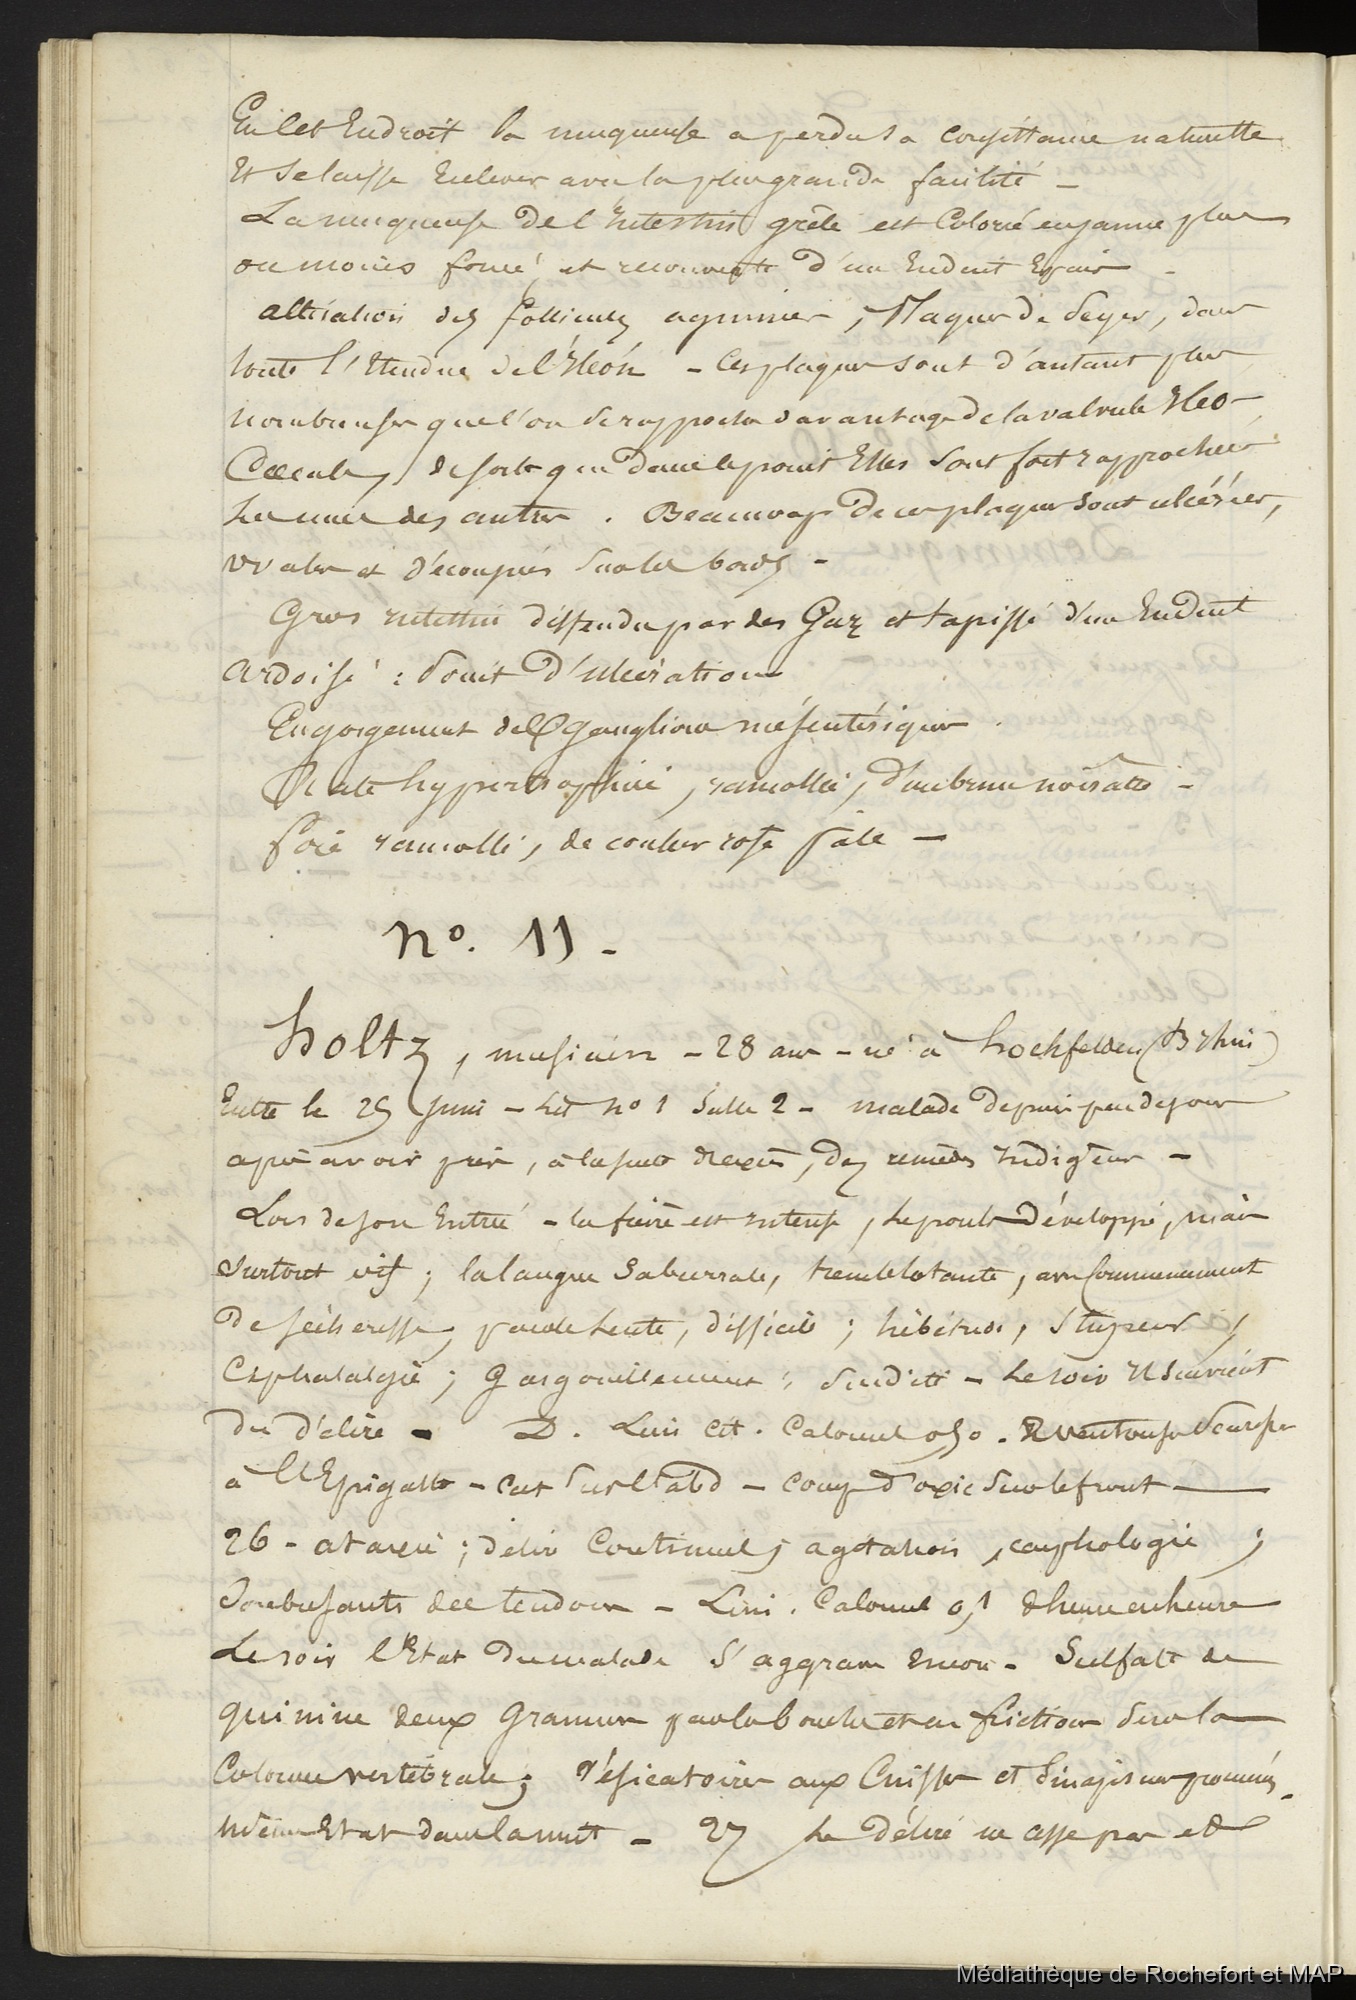 En cet Endroit la muqueuse a perdu sa consistance naturelle
Et se laisse Enlever avec la plus grande facilité -
La muqueuse de l'Intestin grêle est Coloriée en jaune plus
ou moins foncé, et recouverte d'un Enduit Epais -
altération des follicules agminés, Plaques de Peyer, dans
toute l'Etendue de l'Iléon - Ces plaques sont d'autant plus
nombreuses que l'on se rapproche davantage de la valvule Iléo-
Cœcale, de sorte que dans ce point Elles sont fort rapprochées
les unes des autres. Beaucoup de ces plaques sont ulcérées,
ovales et découpées sur les bords -
Gros intestin distendu par des Gaz et tapissé d'un Enduit
ardoisé : point d'ulcérations
Engorgement des Ganglions mésentériques.
Rate hypertrophiée, ramollie, d'un brun noirâtre -
foie ramolli, de couleur rose pâle -
No. 11 -
Holtz, musicien - 28 ans - né à hochfelden (B Rhin)
Entré le 25 Juin - Lit no 1 Salle 2 - malade depuis peu de jours
après avoir pris, à la suite d'excès, des remèdes Indigènes -
Lors de son Entrée - la fièvre est intense, le pouls développé, mais
surtout vif ; la langue saburrale, tremblotante, avec commencement
de sécheresse, parole lente, difficile ; hébétude, stupeur,
Céphalalgie ; Gargouillement ; Surdité - Le soir Il survient
du délire - D. Lim cit. Calomel 0,50. 2 ventouses Scarifiées
à l'Epigastre - Cat sur l'abd - Comp d'oxic sur le front -
26 - ataxie ; délire Continuel ; agitation, carphologie ;
Soubresauts des tendons - Lim. Calomel 0,1 d'heure en heure
Le soir l'Etat du malade s'aggrave Encore - Sulfate de
quinine deux Grammes par la bouche et en friction sur la
Colonne vertébrale ; Vésicatoires aux Cuisses et Sinapismes promenés -
même Etat dans la nuit - 27 Le délire ne cesse pas et